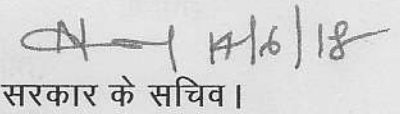 14/6/18
सरकार के सचिव।